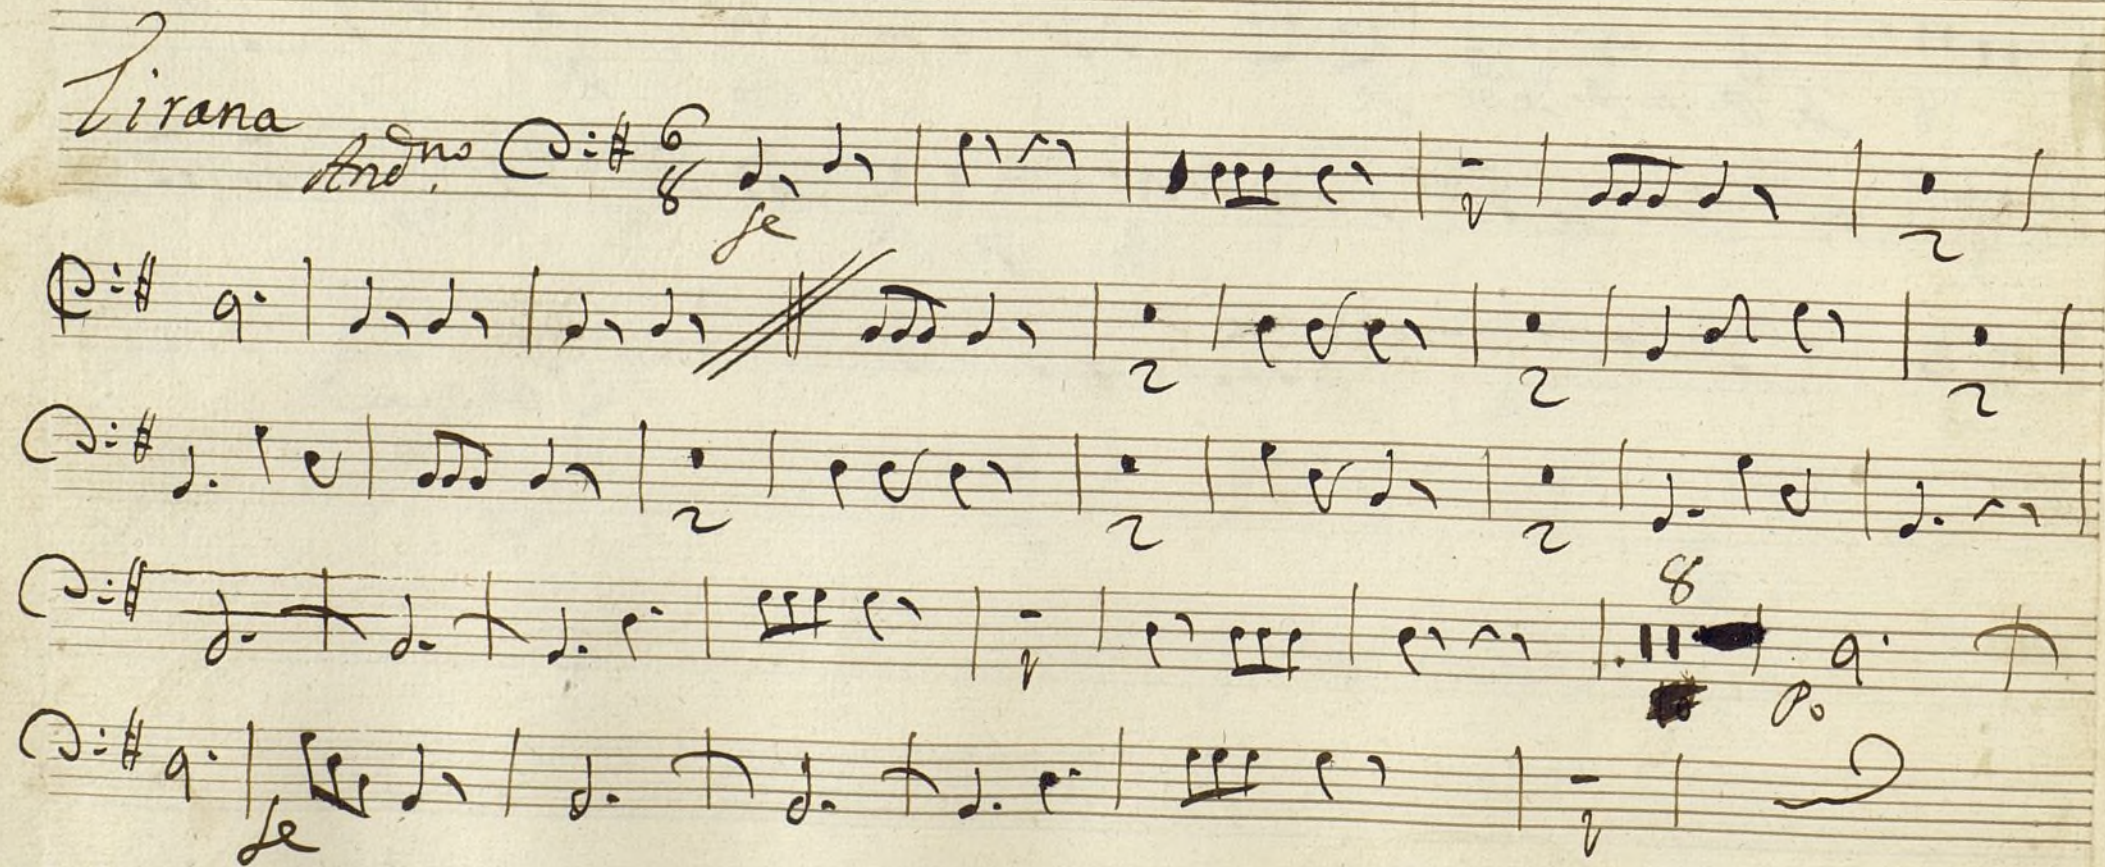 Tirana
And.no 6
8
fe
2
2 2 2
2 2 2
8
Po
fe